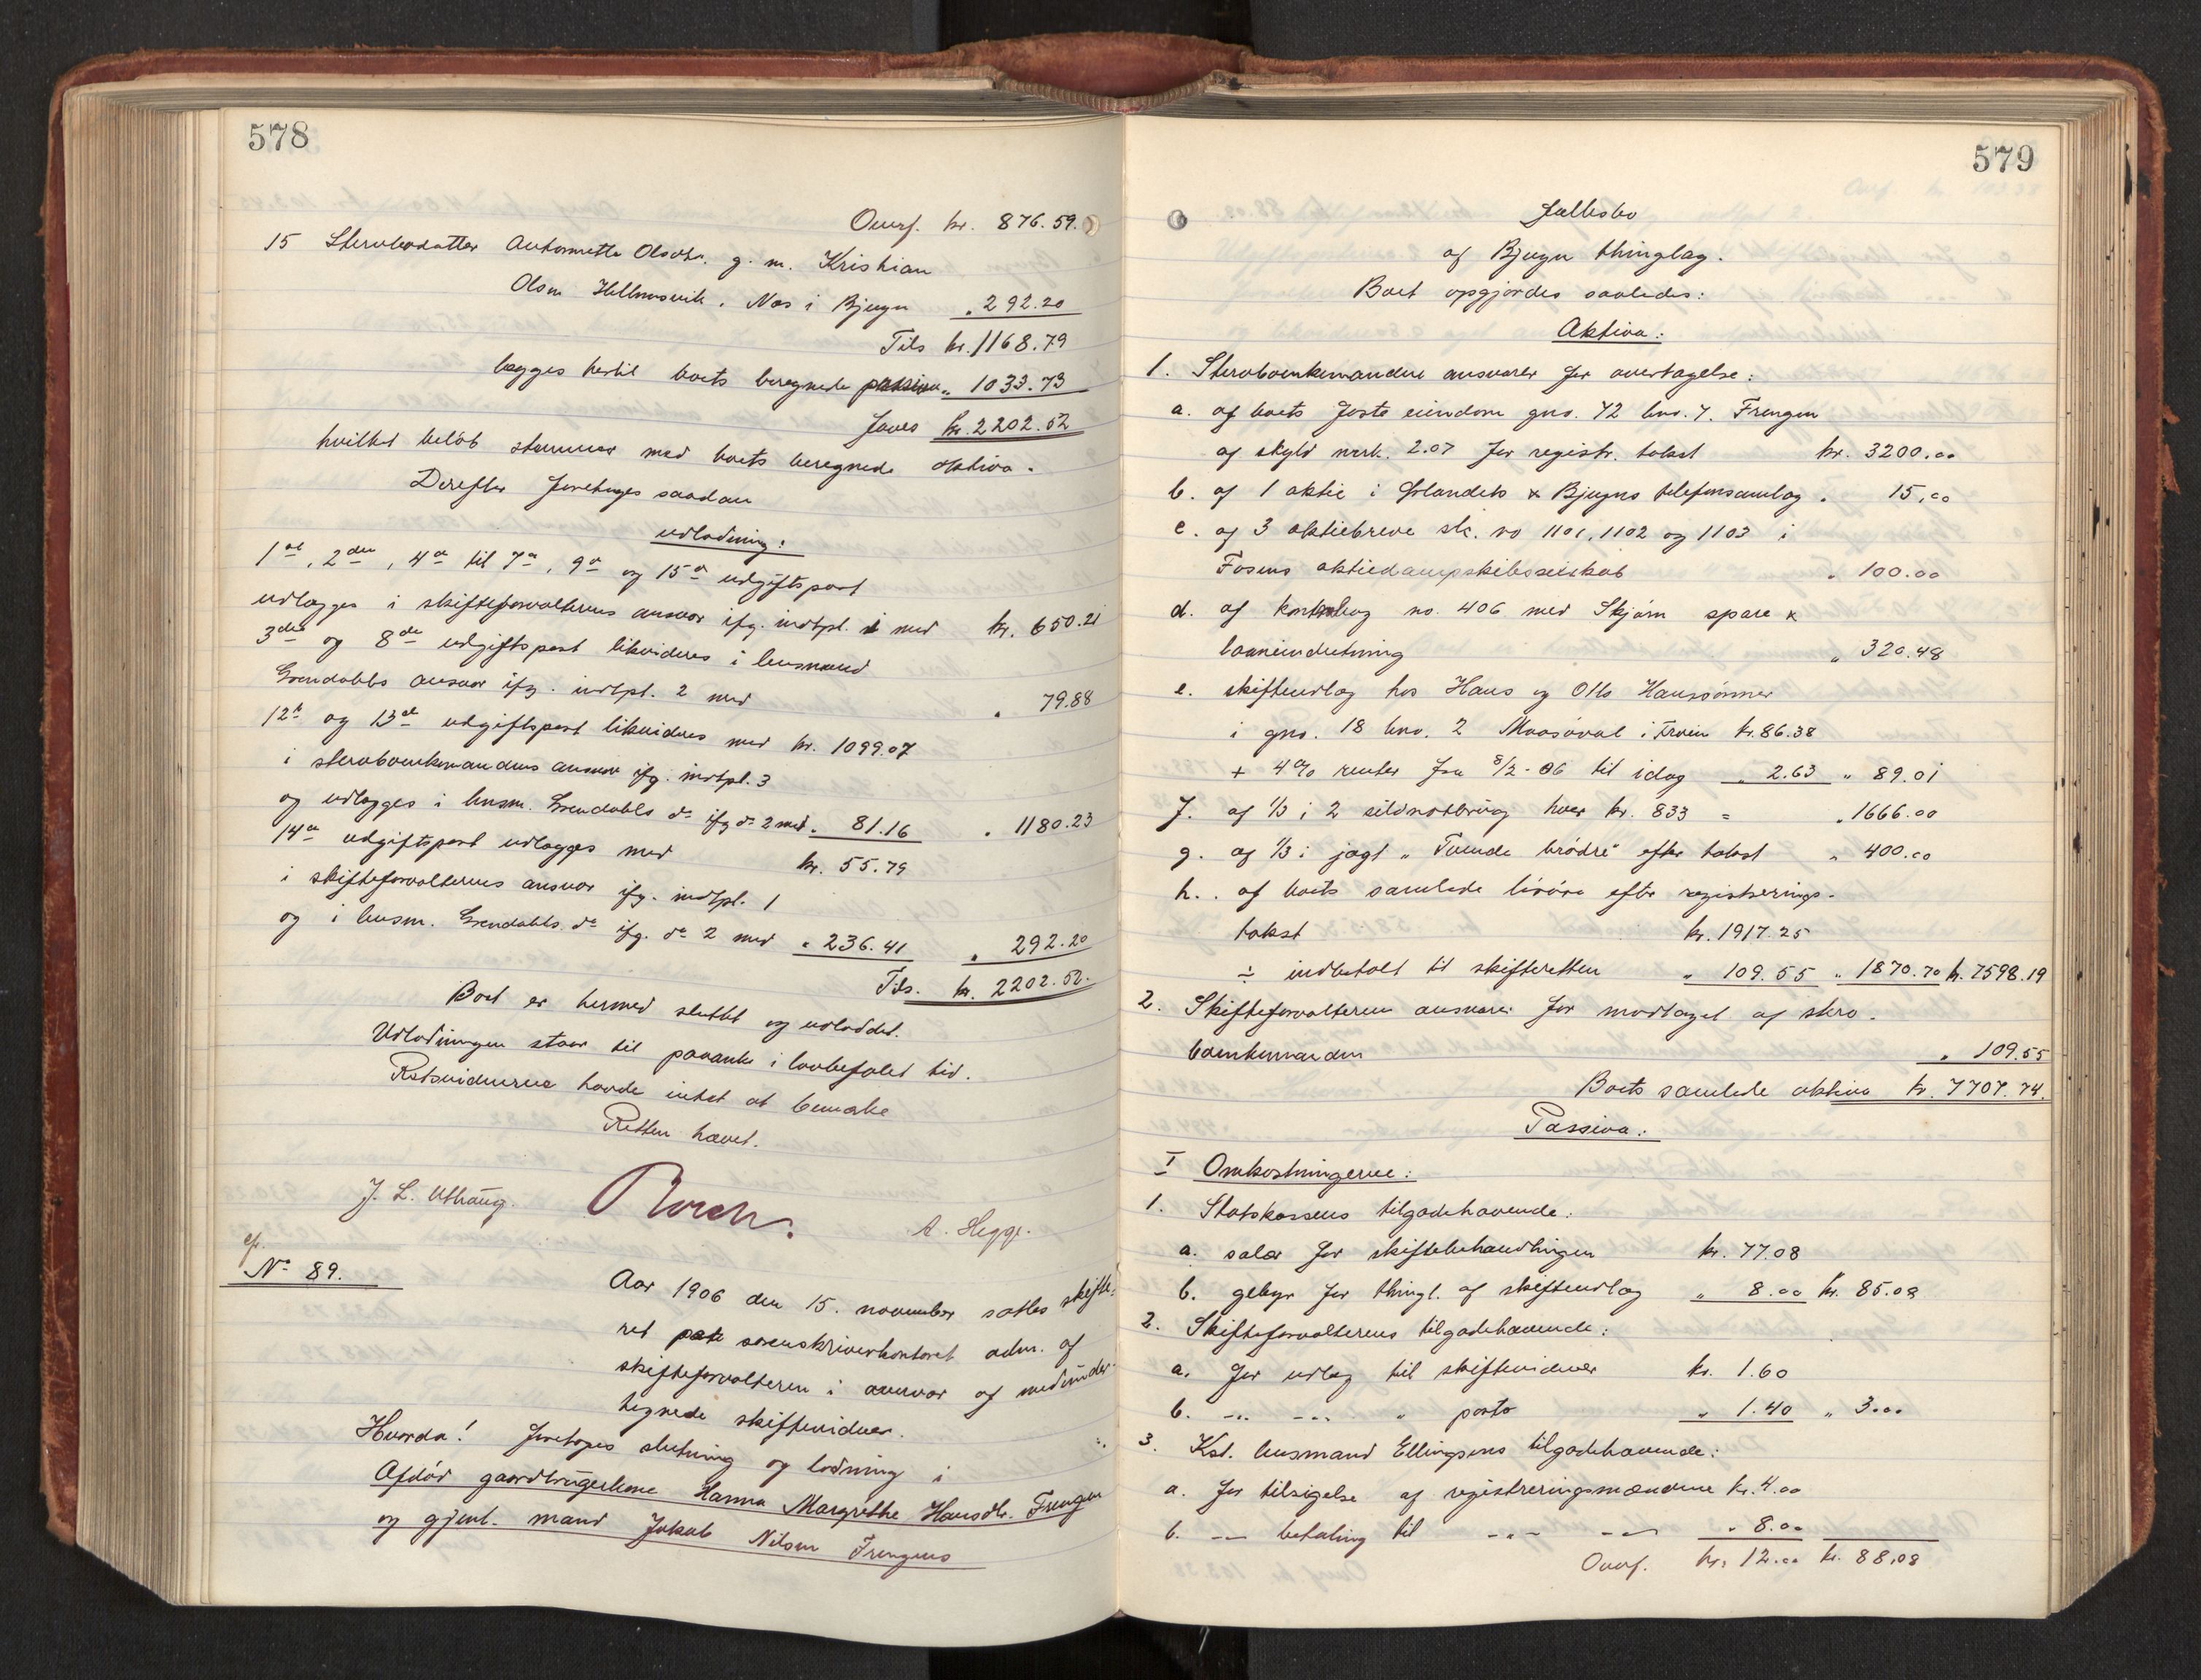 578
Overf. kr. 876.59.
15 Stervbodatter Antonette Olsdtr. g. m. Kristian
Olsen Hellemsvik, Næs i Bjugn " 292.20
Tils kr. 1168.79
lægges hertil boets beregnede passiva " 1033.73
faaes kr. 2202.52
hvilket beløb stemmer med boets beregnede aktiva.
Derefter foretoges saadan
udlodning:
1ste, 2den, 4de til 7de, 9de og 15de udgiftspost
udlægges i skifteforvalterens ansvar ifg. indtpl. 1 med kr. 650.21
3die og 8de udgiftspost likvideres i lensmand
Grendahls ansvar ifg. indtpl. 2 med " 79.88
12te og 13de udgiftspost likvideres med kr. 1099.07
i stervboenkemandens ansvar ifg. indtpl. 3
og udlægges i lensm. Grendahls do ifg do 2 med " 81.16 " 1180.23
14de udgiftspost udlægges med kr. 55.79
i skifteforvalterens ansvar ifg. indtpl. 1
og i lensm. Grendahls do ifg. do 2 med " 236.41 " 292.20
Tils. kr. 2202.52.
Boet er hermed sluttet og udloddet.
Udlodningen staar til paaanke i lovbefalet tid.
Retsvidnerne havde intet at bemærke
Retten hævet.
J. L. Uthaug. A. Hegge.
No 89.
Aar 1906 den 15. november sattes skifte-
ret paa sorenskriverkontoret adm. af
skifteforvalteren i overvær af medunder-
tegnede skiftevidner.
Hvorda! foretoges slutning og lodning i
Afdød gaardbrugerkone Hanna Margrethe Hansdtr. Frengen
og gjenl. mand Jakob Nilsen Frengens
579
fællesbo
af Bjugn thinglag.
Boet opgjordes saaledes:
Aktiva:
1. Stervboenkemanden ansvarer for overtagelse:
a. af boets faste eiendom gno. 72 bno. 7. Frengen
af skyld mrk. 2.07 for registr. takst kr. 3200.00
b. af 1 aktie i Ørlandets & Bjugns telefonsamlag " 15,00
c. af 3 aktiebreve stk. no 1101, 1102 og 1103 i
Fosens aktiedampskibsselskab " 100.00
d. af kontrabog no. 406 med Skjørn spare &
laaneindretning " 320.48
e. skifteudlæg hos Hans og Otto Hanssønner
i gno. 18 bno. 2 Maasøval i Frøien kr. 86.38
+ 4% renter fra 8/2-06 til idag " 2.63 " 89.01
f. af 1/3 i 2 sildnotbrug hver kr. 833 = " 1666.00
g. af 1/3 i jagt "Tvende brødre" efter takst " 400.00
h. af boets samlede løsøre efter registrerings-
takst kr. 1917.25
÷ indbetalt til skifteretten " 109.55 " 1870.70 kr. 7598.19
2. Skifteforvalteren ansvarer for modtaget af sterv-
boenkemanden " 109.55
Boets samlede aktiva kr. 7707.74.
Passiva:
I Omkostningerne:
1. Statskassens tilgodehavende:
a. salær for skiftebehandlingen kr. 77.08
b. gebyr for thingl. af skifteudlæg " 8.00 kr. 85.08
2. Skifteforvalterens tilgodehavende:
a. for udlæg til skiftevidner kr. 1.60
b. -"- -"- " porto " 1.40 " 3.00
3. Kst. lensmand Ellingsens tilgodehavende:
a. for tilsigelse af registreringsmændene kr. 4.00
b. -"- betaling til -"- -"- " 8.00
Overf. kr. 12.00 kr. 88.08